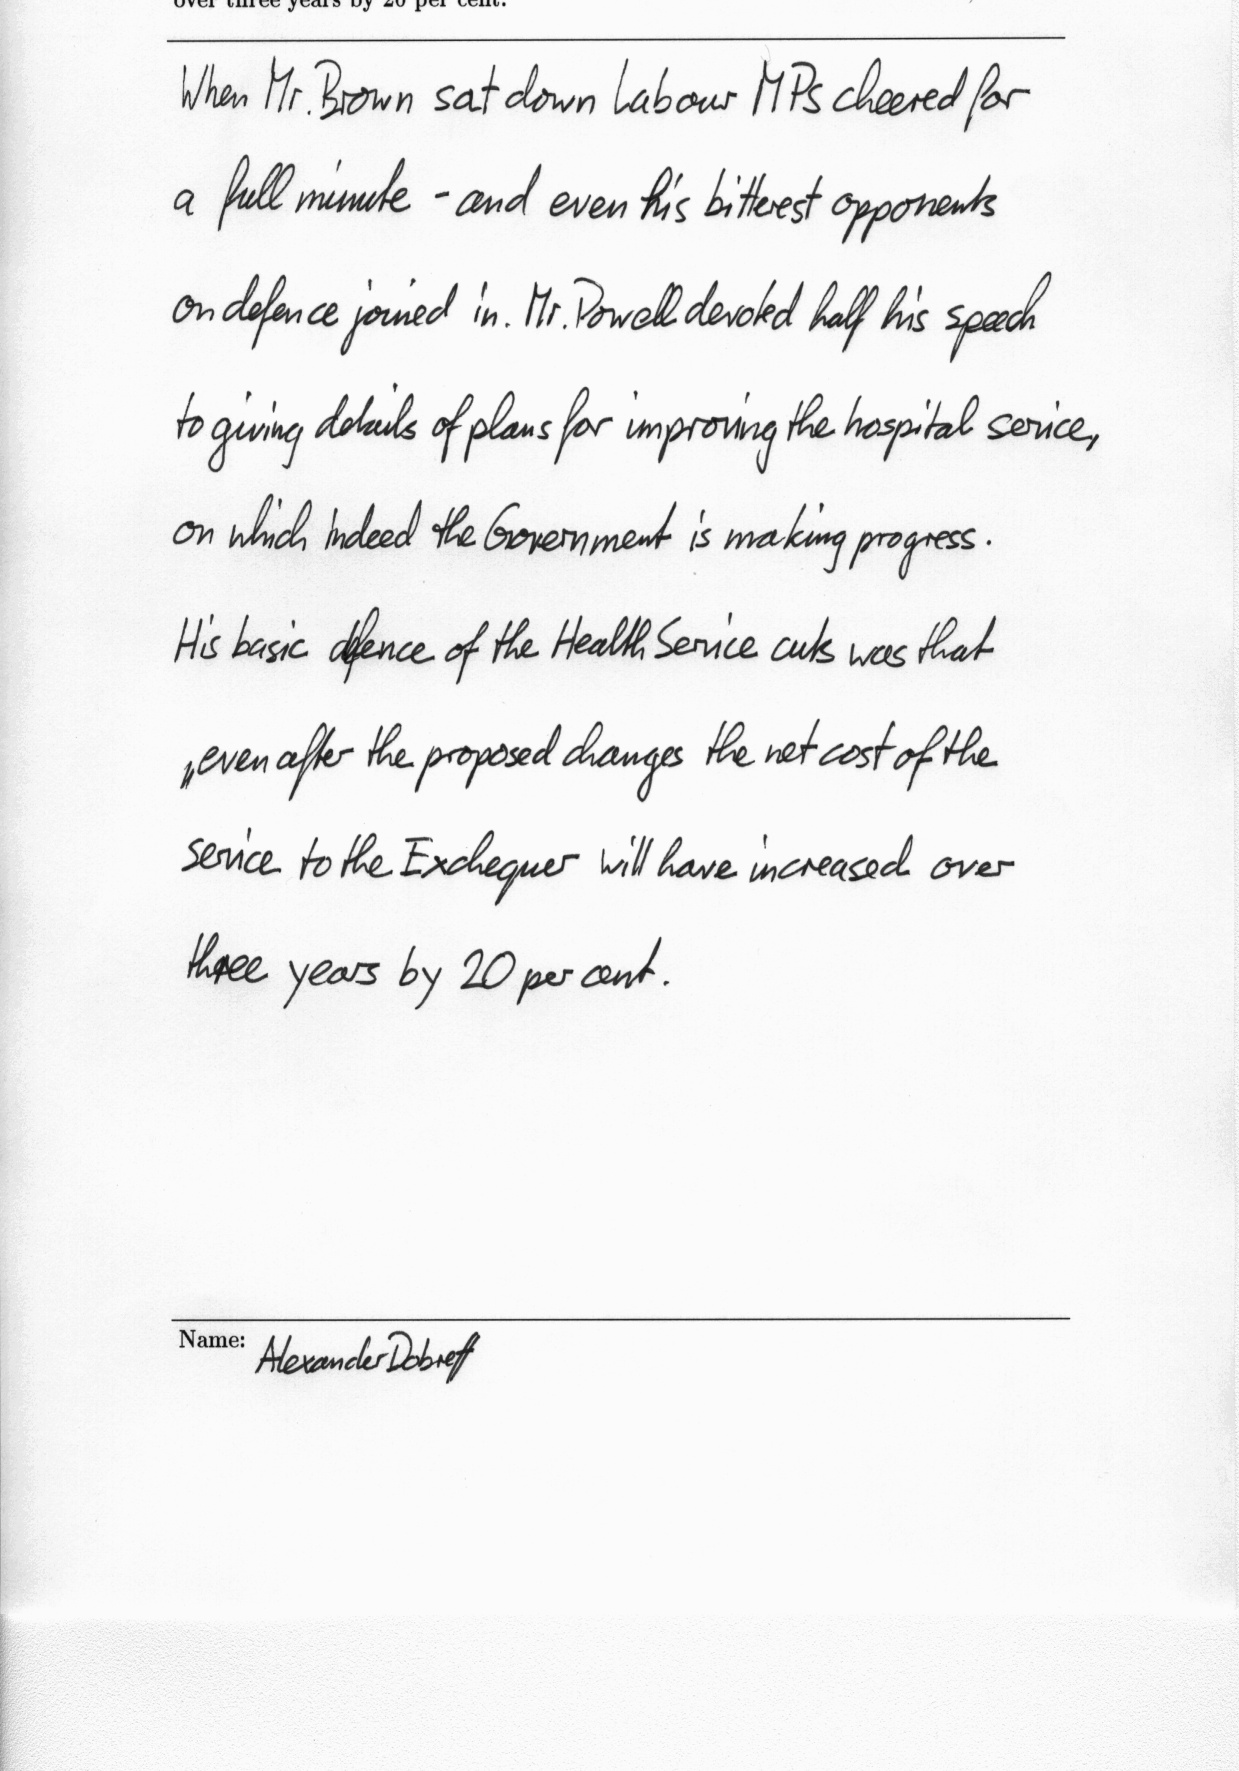 over three years by 20 per cent.
When Mr. Brown sat down Labour MPs cheered for
a full minute - and even his bitterest opponents
on defence joined in. Mr. Powell devoted half his speech
to giving details of plans for improving the hospital service,
on which indeed the Government is making progress.
His basic defence of the Health Service cuts was that
„even after the proposed changes the net cost of the
service to the Exchequer will have increased over
three years by 20 per cent.
Name: Alexander Dobreff